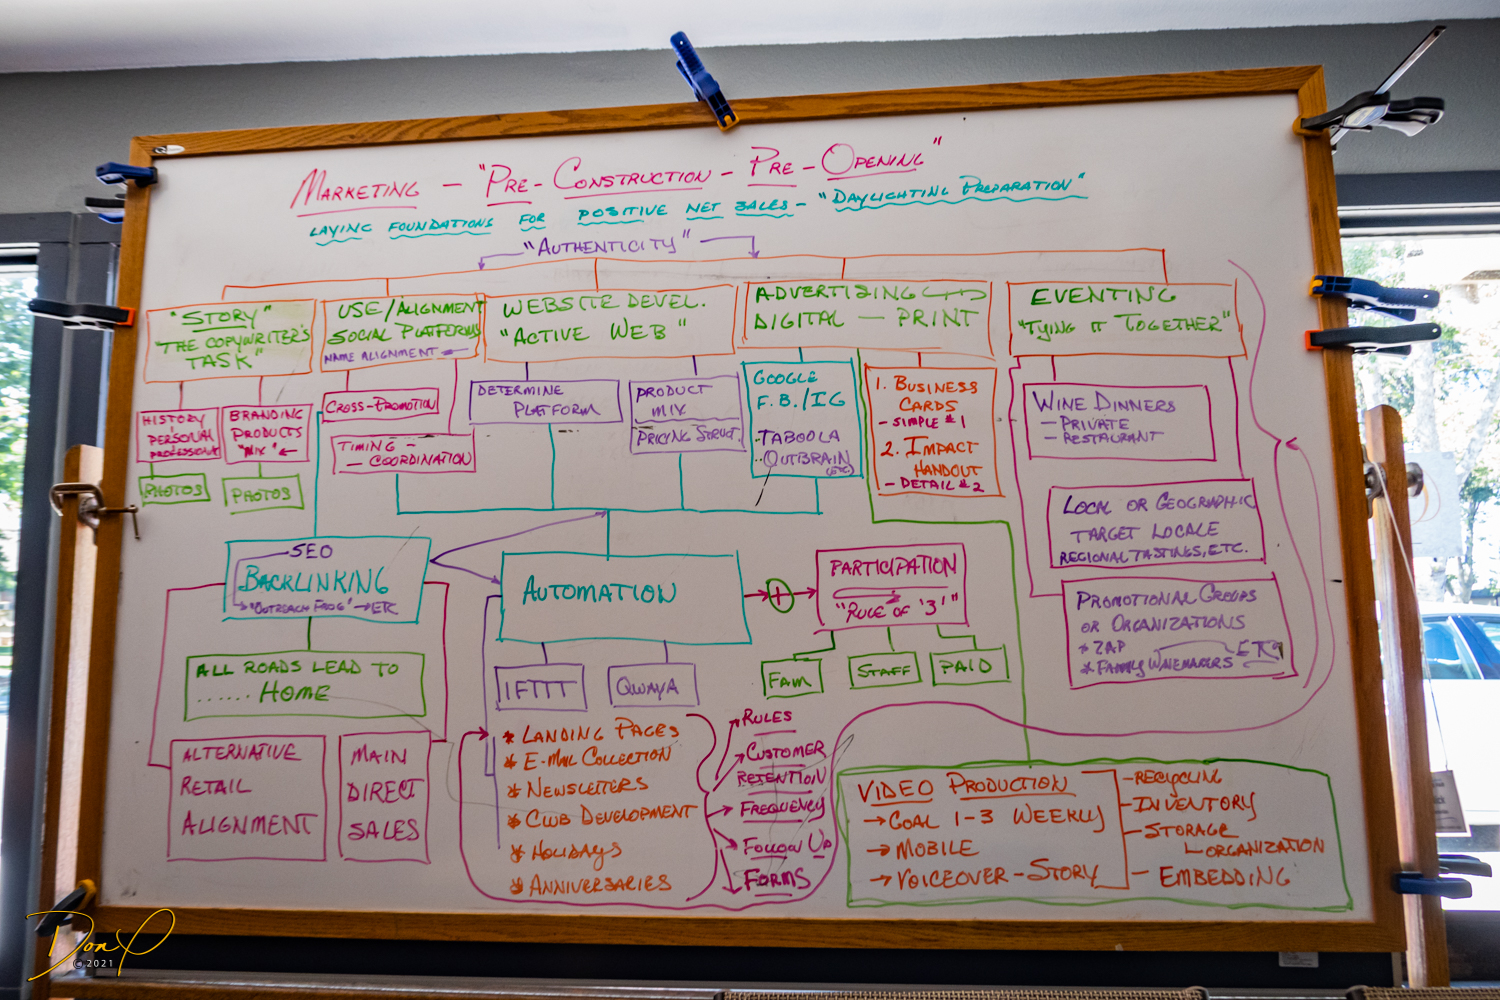 MARKETING — "PRE-CONSTRUCTION - PRE-OPENING"
LAYING FOUNDATIONS FOR POSITIVE NET SALES - "DAYLIGHTING PREPARATION"
"AUTHENTICITY"
"STORY"
"THE COPYWRITER'S
TASK"
USE/ALIGNMENT
SOCIAL PLATFORMS
NAME ALIGNMENT
WEBSITE DEVEL.
"ACTIVE WEB"
ADVERTISING
DIGITAL — PRINT
EVENTING
"TYING IT TOGETHER"
HISTORY
PERSONAL
PROFESSIONAL
PHOTOS
BRANDING
PRODUCTS
"MIX" ←
PHOTOS
CROSS-PROMOTION
TIMING -
- COORDINATION
DETERMINE
PLATFORM
PRODUCT
MIX
PRICING STRUCT.
GOOGLE
F.B./IG
TABOOLA
OUTBRAIN
(ETC)
1. BUSINESS
CARDS
- SIMPLE #1
2. IMPACT
HANDOUT
- DETAIL #2
WINE DINNERS
- PRIVATE
- RESTAURANT
LOCAL OR GEOGRAPHIC
TARGET LOCALE
REGIONAL TASTINGS, ETC.
PROMOTIONAL GROUPS
OR ORGANIZATIONS
* ZAP
* FAMILY WINEMAKERS ETC
SEO
BACKLINKING
"OUTREACH FROG" → ETC
ALL ROADS LEAD TO
...... HOME
ALTERNATIVE
RETAIL
ALIGNMENT
MAIN
DIRECT
SALES
AUTOMATION
IFTTT
QWAYA
+
PARTICIPATION
"RULE OF '3'"
FAM
STAFF
PAID
* LANDING PAGES
* E-MAIL COLLECTION
* NEWSLETTERS
* CLUB DEVELOPMENT
* HOLIDAYS
* ANNIVERSARIES
RULES
CUSTOMER
RETENTION
FREQUENCY
FOLLOW UP
FORMS
VIDEO PRODUCTION
→ GOAL 1-3 WEEKLY
→ MOBILE
→ VOICEOVER - STORY
- RECYCLING
- INVENTORY
- STORAGE
ORGANIZATION
- EMBEDDING
Don P
©2021